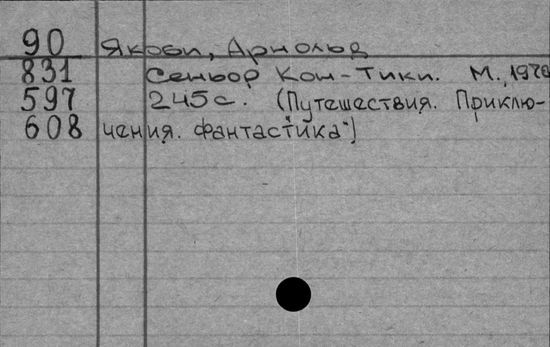 90 Якоби, Арнольд
831 Сеньор Кон-Тики. М., 1970
597 245 с. (Путешествия. Приклю-
608 чения. Фантастика")